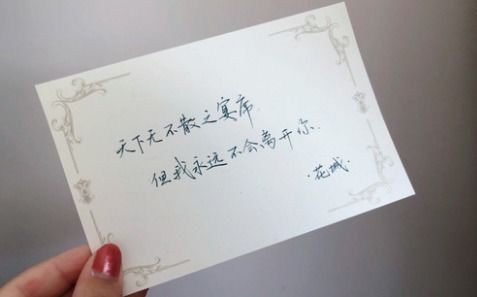 天下无不散之宴席.
但我永远不会离开你.
·花城·